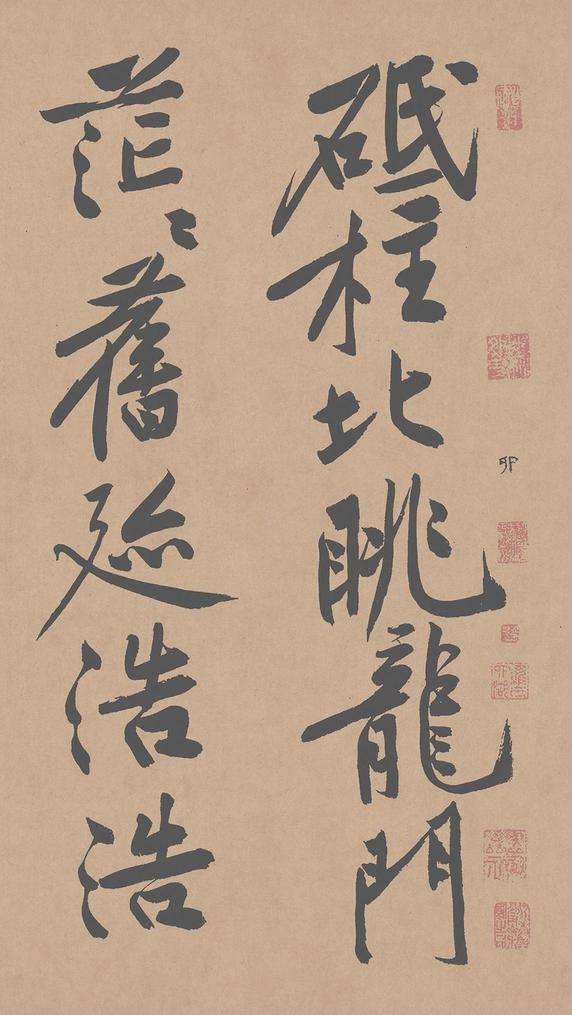 砥柱北眺龍門
茫〻舊迹浩浩